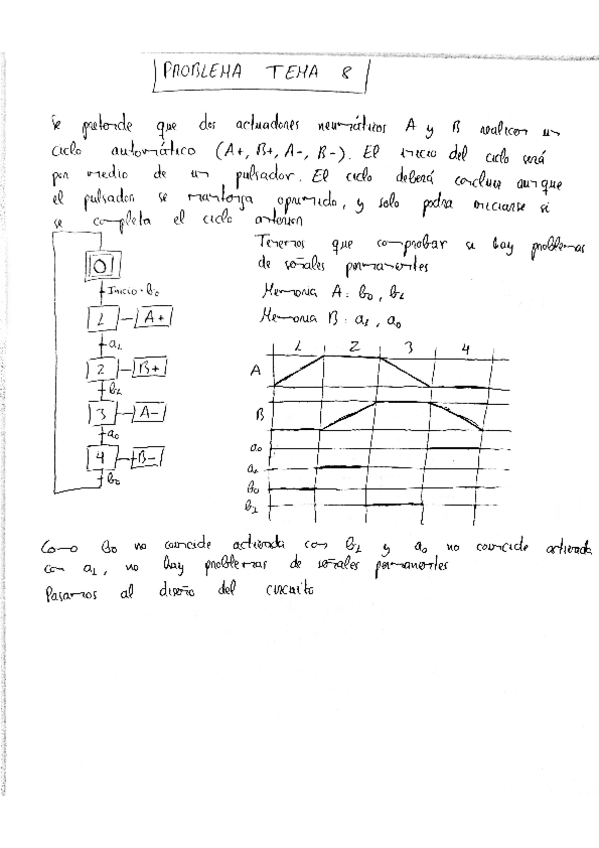 PROBLEMA TEMA 8
Se pretende que dos actuadores neumáticos A y B realicen un
ciclo automático (A+, B+, A-, B-). El inicio del ciclo será
por medio de un pulsador. El ciclo deberá concluir aunque
el pulsador se mantenga oprimido, y solo podrá iniciarse si
se completa el ciclo anterior
Tenemos que comprobar si hay problemas
de señales permanentes
Memoria A: b0, b1
Memoria B: a1, a0
0
Inicio · b0
1 A+
a1
2 B+
b1
3 A-
a0
4 B-
b0
1 2 3 4
A
B
a0
a1
b0
b1
Como b0 no coincide activada con b1 y a0 no coincide activada
con a1, no hay problemas de señales permanentes
Pasamos al diseño del circuito